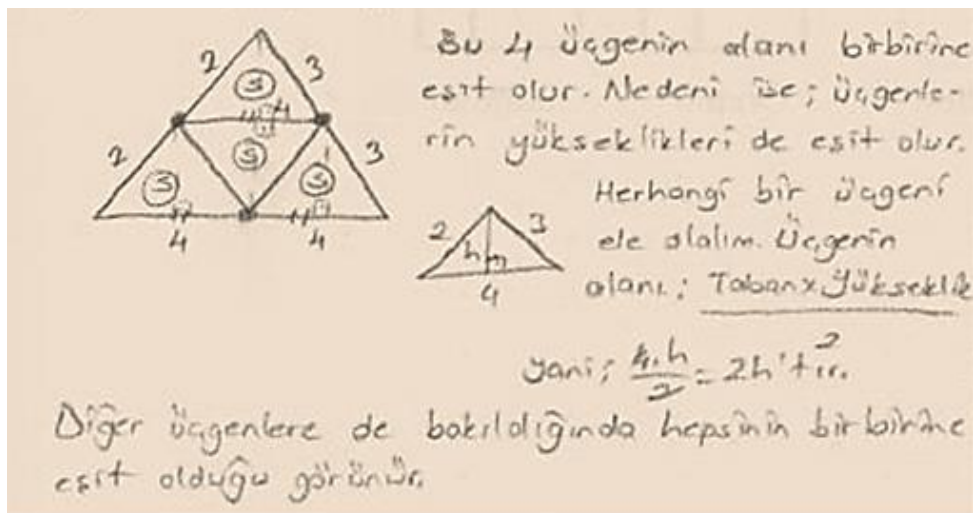 2
3
S
4
2
3
S
S
S
4
4
Bu 4 üçgenin alanı birbirine
eşit olur. Nedeni ise; üçgenle-
rin yükseklikleri de eşit olur.
Herhangi bir üçgeni
ele alalım. Üçgenin
alanı; Taban x Yükseklik
2
2
3
h
4
yani; 4.h/2 = 2h'tır.
Diğer üçgenlere de bakıldığında hepsinin birbirine
eşit olduğu görünür.